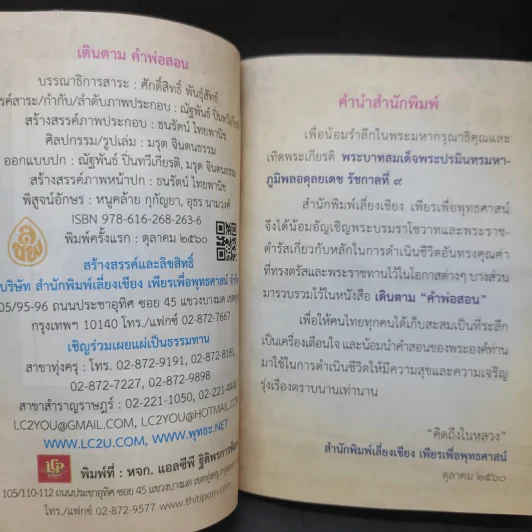 เดินตาม คำพ่อสอน
บรรณาธิการสาระ : ศักดิ์สิทธิ์ พันธุ์สัทธ์
รค์สาระ/กำกับ/ลำดับภาพประกอบ : ณัฐพันธ์ ปิ่นทวีเกียรติ
สร้างสรรค์ภาพประกอบ : ธนรัตน์ ไทยพานิช
ศิลปกรรม/รูปเล่ม : มรุต จินตนธรรม
ออกแบบปก : ณัฐพันธ์ ปิ่นทวีเกียรติ, มรุต จินตนธรรม
สร้างสรรค์ภาพหน้าปก : ธนรัตน์ ไทยพานิช
พิสูจน์อักษร : หนูคล้าย กุกัญยา, อุธร นามวงศ์
ISBN 978-616-268-263-6
พิมพ์ครั้งแรก : ตุลาคม ๒๕๖๐
สร้างสรรค์และลิขสิทธิ์
บริษัท สำนักพิมพ์เลี่ยงเชียง เพียรเพื่อพุทธศาสน์ จำกัด
05/95-96 ถนนประชาอุทิศ ซอย 45 แขวงบางมด เขต
กรุงเทพฯ 10140 โทร./แฟกซ์ 02-872-7667
เชิญร่วมเผยแผ่เป็นธรรมทาน
สาขาทุ่งครุ : โทร. 02-872-9191, 02-872-8181,
02-872-7227, 02-872-9898
สาขาสำราญราษฎร์ : 02-221-1050, 02-221-4446
LC2YOU@GMAIL.COM, LC2YOU@HOTMAIL.COM
WWW.LC2U.COM, WWW.พุทธะ.NET
LCP
พิมพ์ที่ : หจก. แอลซีพี ฐิติพรการพิมพ์
105/110-112 ถนนประชาอุทิศ ซอย 45 แขวงบางมด เขตทุ่งครุ
โทร./แฟกซ์ 02-872-9577 www.thitiporn.com
คำนำสำนักพิมพ์
เพื่อน้อมรำลึกในพระมหากรุณาธิคุณและ
เทิดพระเกียรติ พระบาทสมเด็จพระปรมินทรมหา-
ภูมิพลอดุลยเดช รัชกาลที่ ๙
สำนักพิมพ์เลี่ยงเชียง เพียรเพื่อพุทธศาสน์
จึงได้น้อมอัญเชิญพระบรมราโชวาทและพระราช-
ดำรัสเกี่ยวกับหลักในการดำเนินชีวิตอันทรงคุณค่า
ที่ทรงตรัสและพระราชทานไว้ในโอกาสต่างๆ บางส่วน
มารวบรวมไว้ในหนังสือ เดินตาม “คำพ่อสอน”
เพื่อให้คนไทยทุกคนได้เก็บสะสมเป็นที่ระลึก
เป็นเครื่องเตือนใจ และน้อมนำคำสอนของพระองค์ท่าน
มาใช้ในการดำเนินชีวิตให้มีความสุขและความเจริญ
รุ่งเรืองตราบนานเท่านาน
“คิดถึงในหลวง”
สำนักพิมพ์เลี่ยงเชียง เพียรเพื่อพุทธศาสน์
ตุลาคม ๒๕๖๐